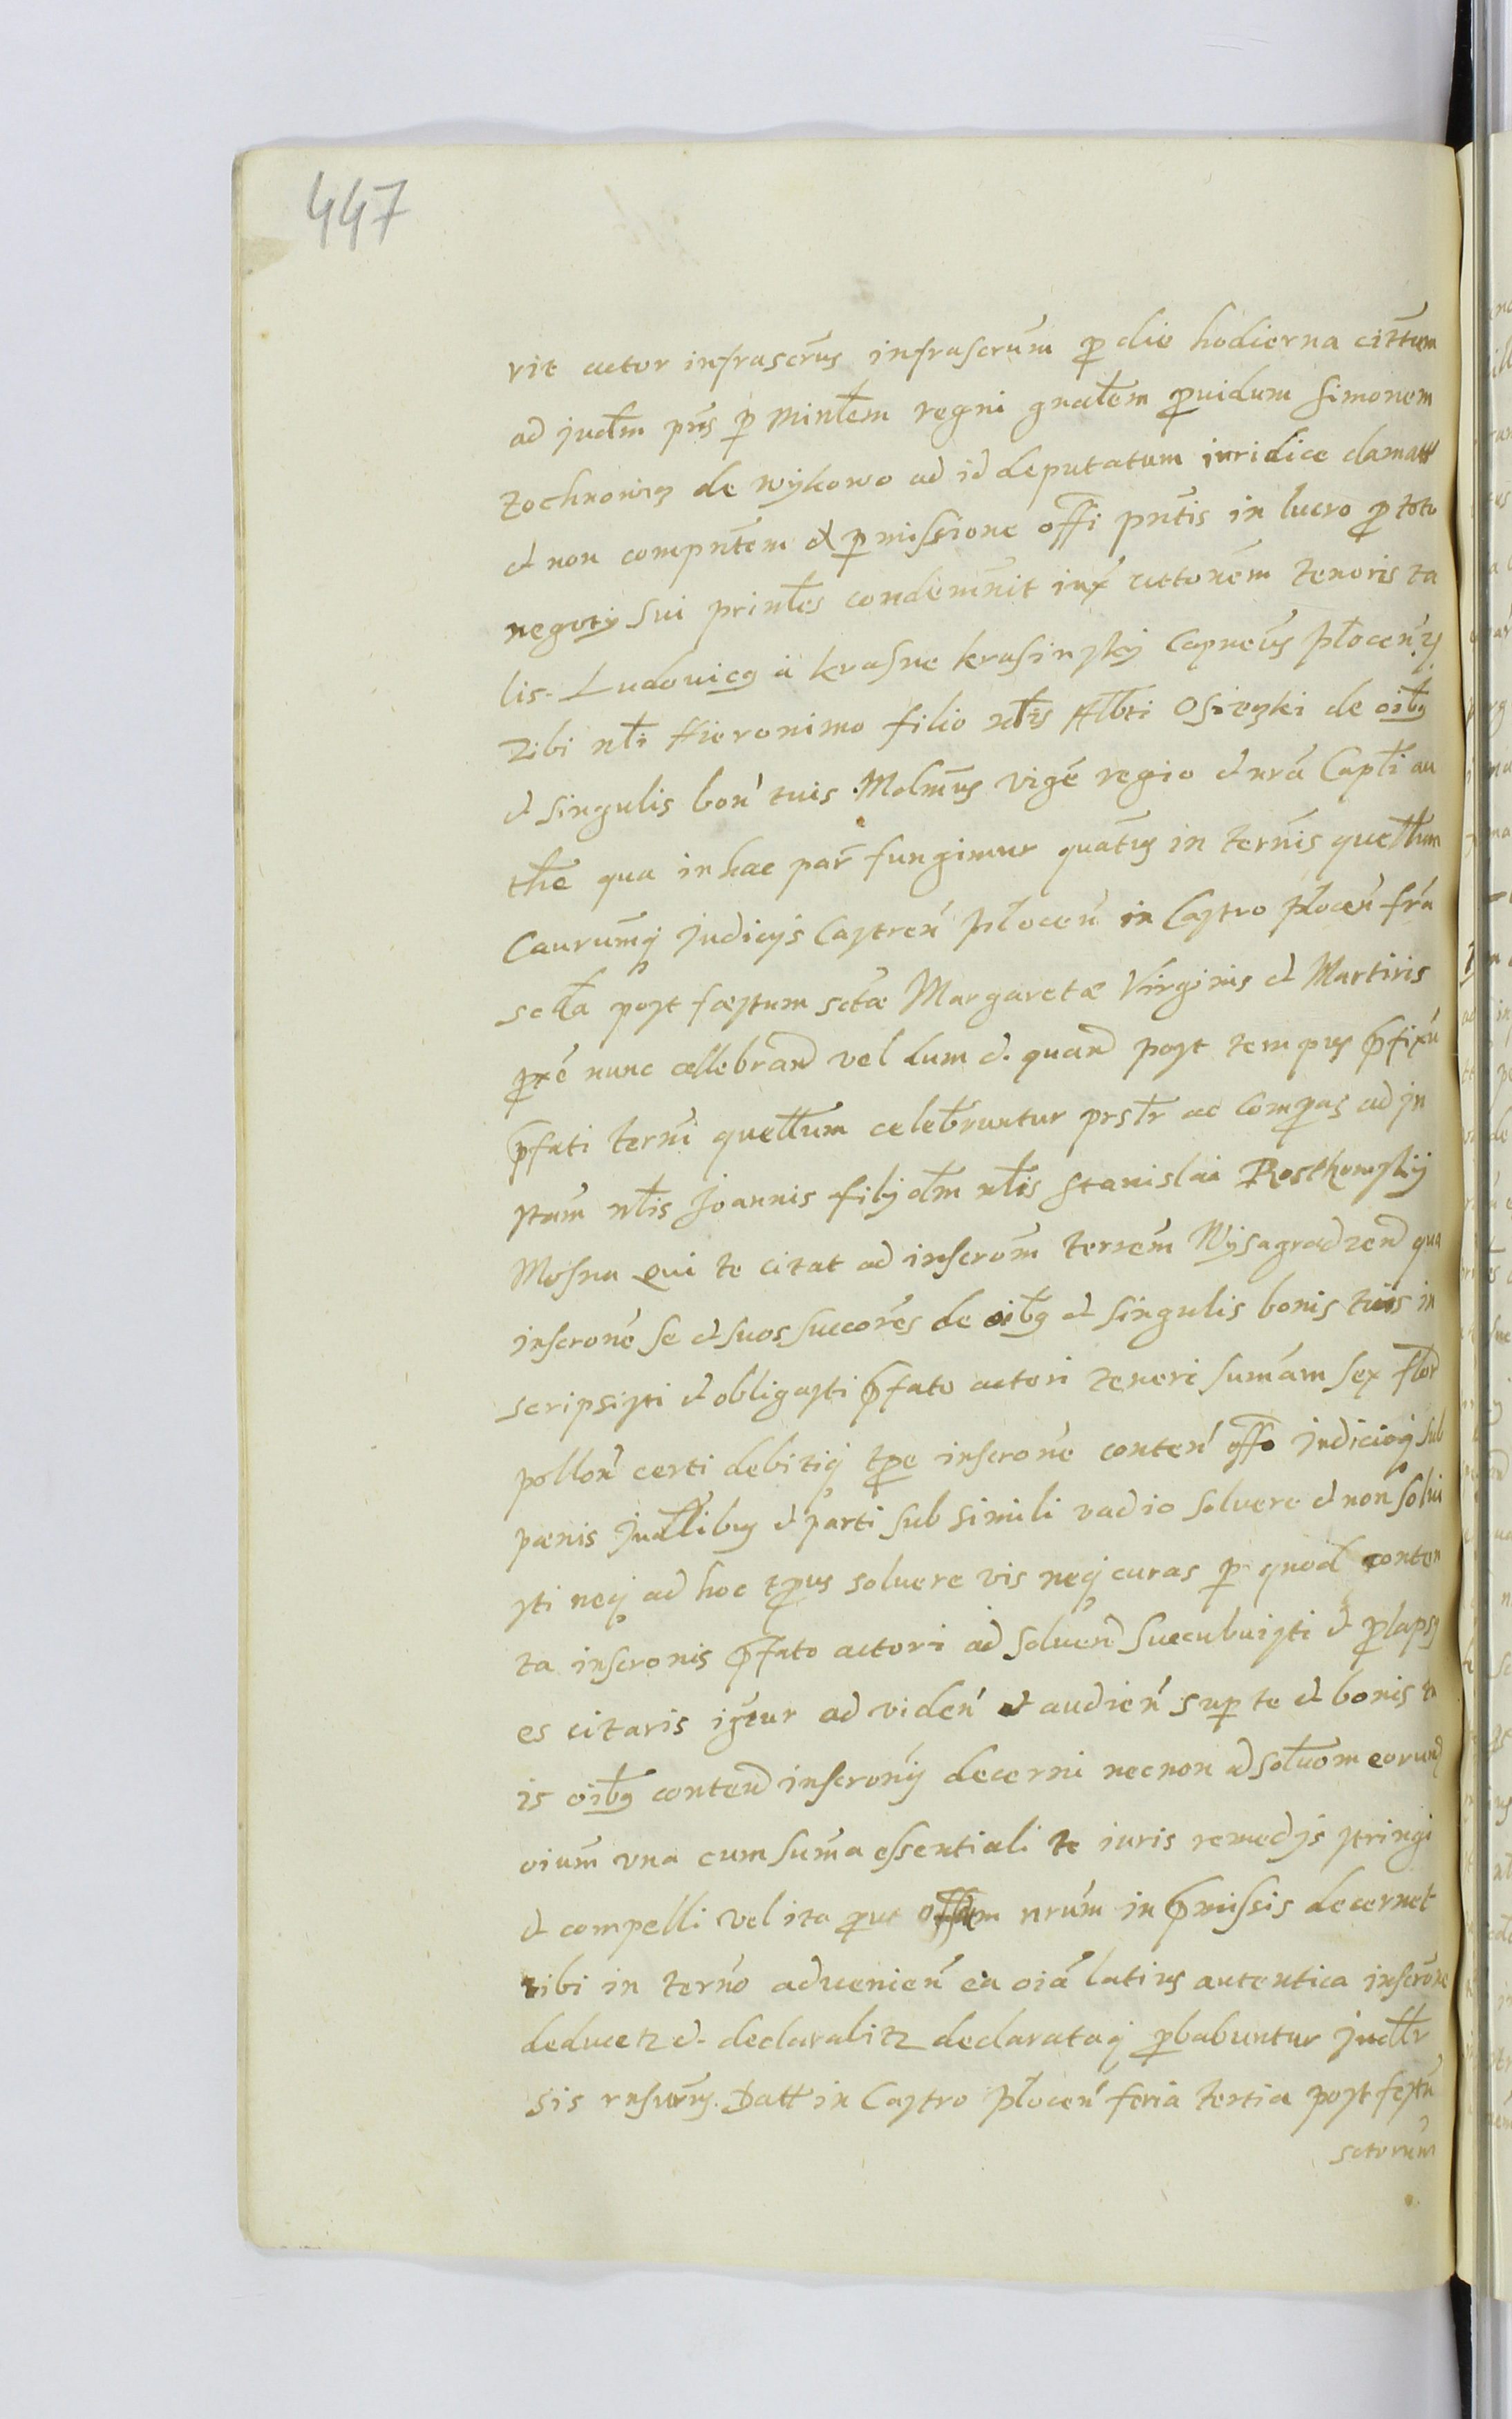 447
rit actor infrascrus infrascrum p die hodierna cittum
ad judm pns p Mintem regni gnalem puidum Simonem
Zochnowig de Wykowo ad id deputatum iuridice clamatt
et non comprntem et pmissione offi pntis in lucro p toto
negoty sui printes condemnit iux cittonem tenoris ta
lis. Ludouicg a krasne krasinsky Capneus płocen
Tibi nłi Hieronimo filio nłis Albti Osiegki de oibg
et singulis bon tuis Molmus vige regio et nra Capłi au
the qua in hac par fungimur quatus in ternis quellum
Caurumq judicys Castren płocen in Castro płocen fra
scda post festum sctæ Margaretæ Virginis et Martiris
pxe nunc cellebrand vel dum et quand post tempus pfixu
pfati terni quellum celebruntur prstr ac compas ad jn
stam nłis Joannis fily olm nłis Stanislai Rostkowsky
Mosna qui te citat ad inscrom terrem Wysagradzen qua
inscrone se et suos succores de oibg et singulis bonis tuis in
scripsisti et obligasti pfato actori teneri sumam sex flor
pollon certi debitiq tpe inscrone conten offo judicioq sub
pænis judłibus et parti sub simili vadio soluere et non solui
sti neq ad hoc tpus soluere vis neq curas p quod conten
ta inscronis pfato actori ad soluend succubuisti et plapsg
es citaris igtur ad viden et audien sup te et bonis tu
is oibg contend inscrony decerni necnon ad soluom eorund
oium vna cum suma essentiali te iuris remedys stringi
et compelli vel ita put offium nrum in pmissis decernet
tibi in terno aduenien ea oia latius autentica inscrone
deducetz et declarabitz declarataq pbabuntur judłr
sis rnsurus. Datt in Castro płocen feria tertia post festu
sctorum